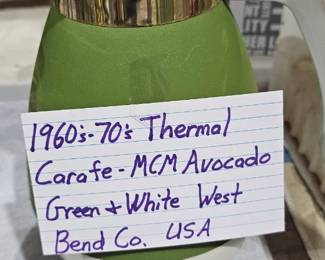 1960's-70's Thermal
Carafe - MCM Avocado
Green + White West
Bend Co. USA